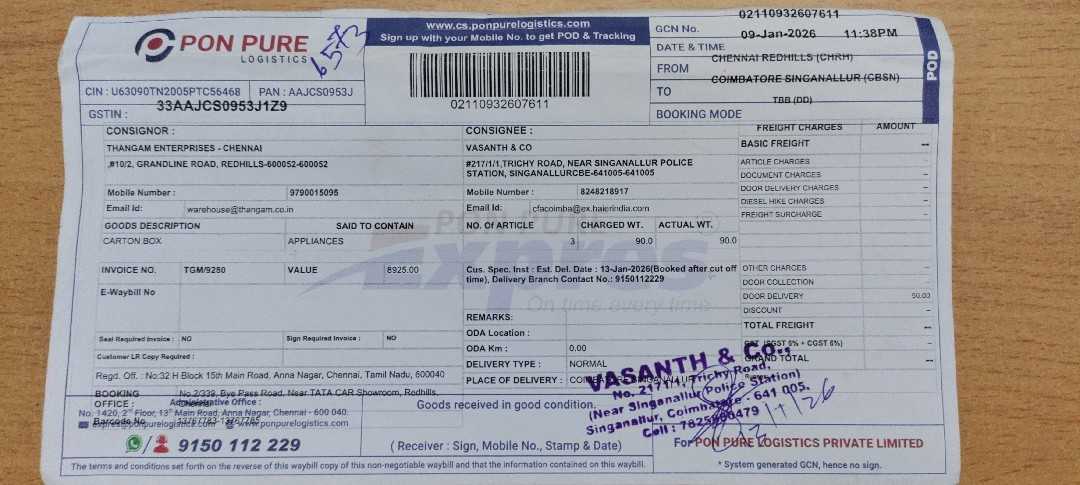 PON PURE
LOGISTICS
6573
www.cs.ponpurelogistics.com
Sign up with your Mobile No. to get POD & Tracking
02110932607611
GCN No. 02110932607611
DATE & TIME 09-Jan-2026 11:38PM
FROM CHENNAI REDHILLS (CHRH)
TO COIMBATORE SINGANALLUR (CBSN)
BOOKING MODE TBB (DD)
POD
CIN : U63090TN2005PTC56468 PAN : AAJCS0953J
GSTIN : 33AAJCS0953J1Z9
CONSIGNOR :
THANGAM ENTERPRISES - CHENNAI
,#10/2, GRANDLINE ROAD, REDHILLS-600052-600052
Mobile Number : 9790015095
Email Id: warehouse@thangam.co.in
CONSIGNEE :
VASANTH & CO
#217/1/1,TRICHY ROAD, NEAR SINGANALLUR POLICE
STATION, SINGANALLURCBE-641005-641005
Mobile Number : 8248218917
Email Id: cfacoimba@ex.haierindia.com
GOODS DESCRIPTION SAID TO CONTAIN NO. OF ARTICLE CHARGED WT. ACTUAL WT.
CARTON BOX APPLIANCES 3 90.0 90.0
INVOICE NO. TGM/9280 VALUE 8925.00
E-Waybill No
Cus. Spec. Inst : Est. Del. Date : 13-Jan-2026(Booked after cut off
time), Delivery Branch Contact No.: 9150112229
PON PURE
Expres
On time every time
®
REMARKS:
ODA Location :
ODA Km : 0.00
DELIVERY TYPE : NORMAL
PLACE OF DELIVERY : COIMBATORE SINGANALLUR
Seal Required Invoice : NO Sign Required Invoice : NO
Customer LR Copy Required :
FREIGHT CHARGES AMOUNT
BASIC FREIGHT --
ARTICLE CHARGES --
DOCUMENT CHARGES --
DOOR DELIVERY CHARGES --
DIESEL HIKE CHARGES --
FREIGHT SURCHARGE --
OTHER CHARGES --
DOOR COLLECTION --
DOOR DELIVERY 50.00
DISCOUNT --
TOTAL FREIGHT --
GST (SGST 6% + CGST 6%)
GRAND TOTAL --
Regd. Off. : No:32 H Block 15th Main Road, Anna Nagar, Chennai, Tamil Nadu, 600040
BOOKING OFFICE : No.2/339, Bye Pass Road, Near TATA CAR Showroom, Redhills, Chennai
Administrative Office :
No. 1420, 2nd Floor, 13th Main Road, Anna Nagar, Chennai - 600 040.
express@ponpurelogistics.com www.ponpurelogistics.com
Barcode No 13767783-13767785
9150 112 229
Goods received in good condition.
( Receiver : Sign, Mobile No., Stamp & Date)
VASANTH & Co.,
No. 217/1/1, Trichy Road,
(Near Singanallur Police Station)
Singanallur, Coimbatore - 641 005.
Cell : 7825880479
For PON PURE LOGISTICS PRIVATE LIMITED
* System generated GCN, hence no sign.
The terms and conditions set forth on the reverse of this waybill copy of this non-negotiable waybill and that the information contained on this waybill.